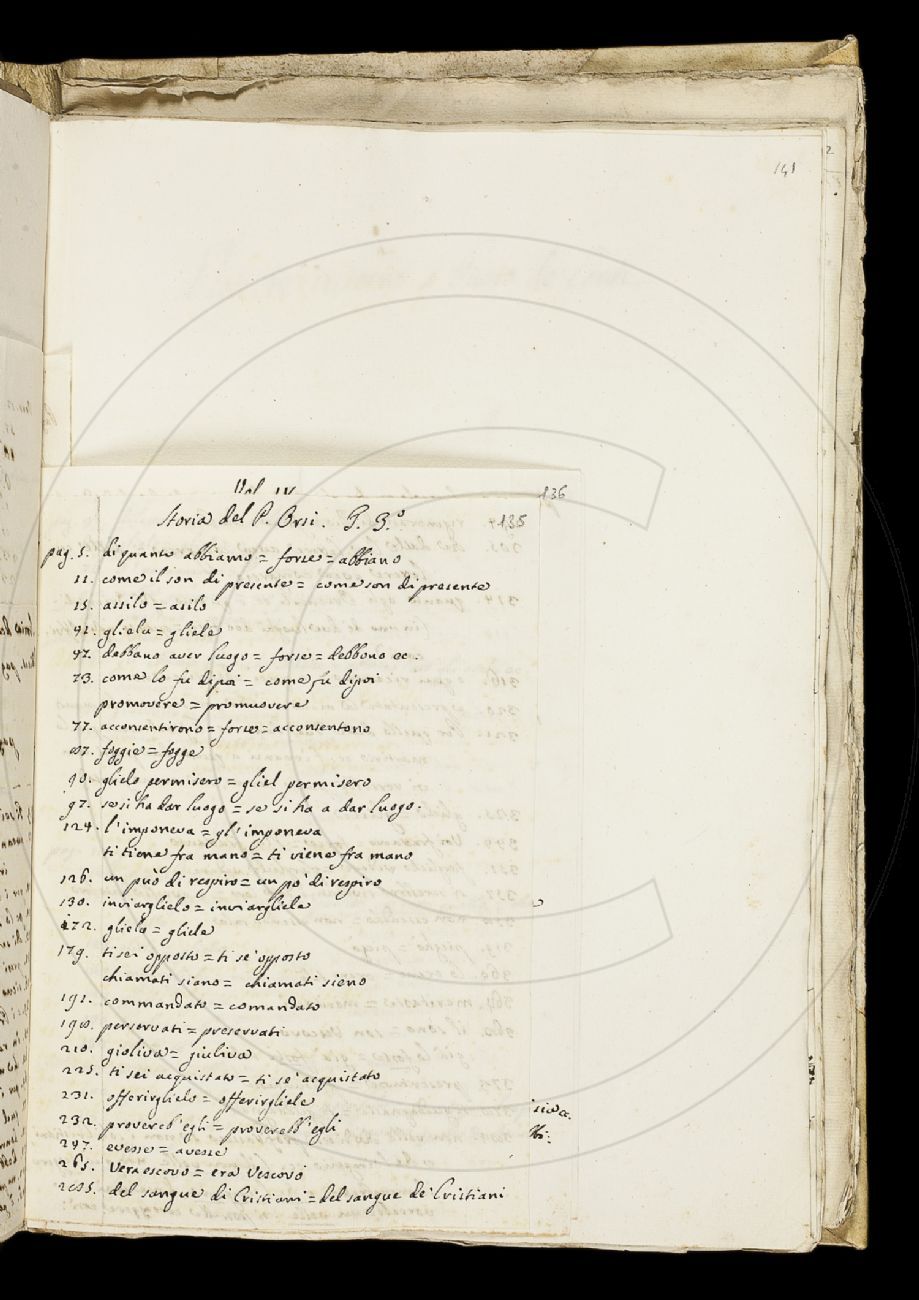 141
Vol. IV
136
Storia del P. Orsi. T. 3.º
135
pag. 5. di quanto abbiamo = forse = abbiano
11. come il son di presente = come son di presente
15. assilo = asilo
41. glielo = gliele
47. dabbano aver luogo = forse = debbono ec.
73. come lo fu dipoi = come fu dipoi
promovere = promuovere
77. acconsentirono = forse = acconsentono
87. foggie = fogge
90. glielo permisero = gliel permisero
97. se si ha dar luogo = se si ha a dar luogo.
124. l'imponeva = gl'imponeva
ti tiene fra mano = ti viene fra mano
126. un può di respiro = un po' di respiro
130. inviarglielo = inviargliele
172. glielo = gliele
179. ti sei opposto = ti se' opposto
chiamati siano = chiamati sieno
191. commandato = comandato
198. perservati = preservati
210. gioliva = giuliva
225. ti sei acquistato = ti se' acquistato
231. offerirglielo = offerirgliele
232. provereb' egli = proverebb' egli
247. evesse = avesse
265. Vera escovo = era Vescovo
285. del sangue di Cristiani = del sangue de' Cristiani